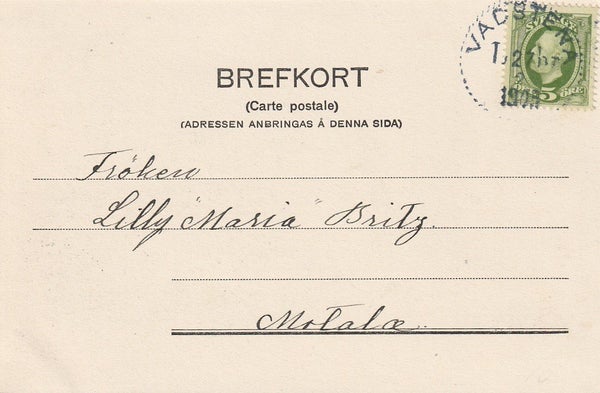 VADSTENA
1903
SVERIGE
5 ÖRE
BREFKORT
(Carte postale)
(ADRESSEN ANBRINGAS Å DENNA SIDA)
Fröken
Lilly "Maria" Britz.
Motala